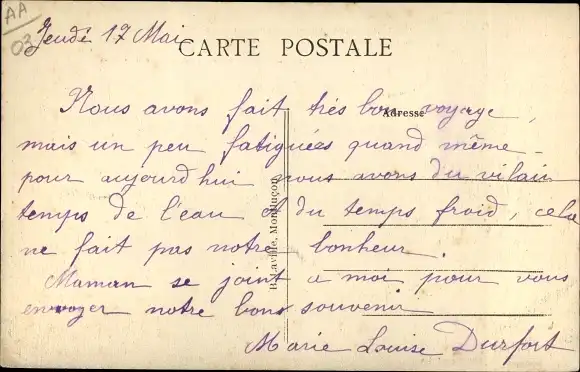 AA
03
Jeudi 17 Mai
CARTE POSTALE
Adresse
Nous avons fait très bon voyage,
mais un peu fatiguées quand même -
pour aujourd'hui nous avons du vilain
temps de l'eau et du temps froid, cela
ne fait pas notre bonheur.
Maman se joint a moi pour vous
envoyer notre bons souvenir
Marie Louise Durfort
B. Laville, Montluçon